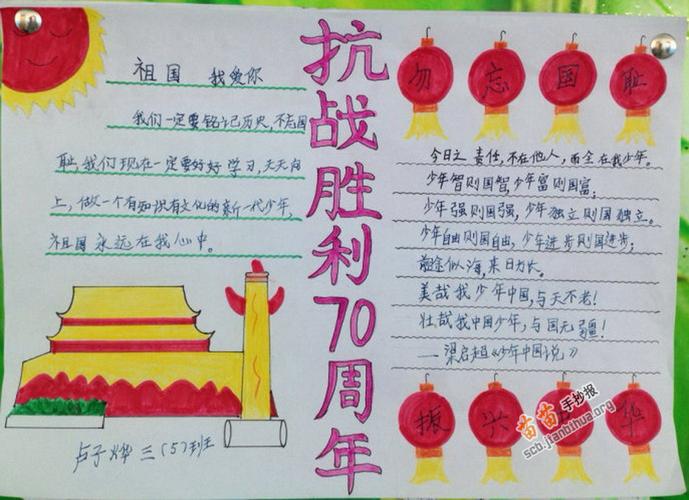 抗战胜利70周年
祖国 我爱你
我们一定要铭记历史,不忘国
耻,我们现在一定要好好学习,天天向
上,做一个有知识有文化的新一代少年,
祖国永远在我心中。
卢子烨三(5)班
勿忘国耻
今日之责任,不在他人,而全在我少年。
少年智则国智,少年富则国富;
少年强则国强,少年独立则国独立。
少年自由则国自由,少年进步则国进步;
前途似海,来日方长。
美哉我少年中国,与天不老!
壮哉我中国少年,与国无疆!
——梁启超《少年中国说》
振兴 华
苗苗手抄报
scb.jianbihua.org